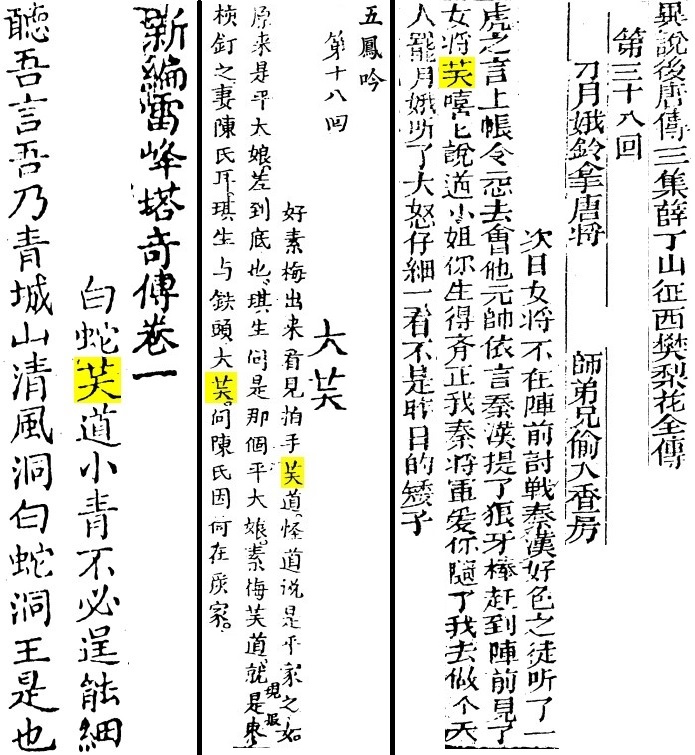 異說後唐傳三集薛丁山征西樊梨花全傳
第三十八回
刁月娥鈴拿唐將　師弟兄偷入香房
次日女將不在陣前討戰秦漢好色之徒听了一
虎之言上帳令去會他元帥依言秦漢提了狼牙棒赶到陣前見了
女將芺嘻匕說道小姐你生得齐正我秦將軍爱你隨了我去做个夫
人罷月娥听了大怒仔細一看不是昨日的矮子
五鳳吟
第十八囬
大芺
好素梅出来看見拍手芺道。怪道说是平家之如
原来是平大娘。差到底也。琪生问是那個平大娘。素梅芺道。就是現报枣
核釘之妻陳氏耳。琪生与鉄頭大芺。问陳氏因何在家。
新編雷峰塔奇傳卷一
白蛇芺道小青不必逞能細
聽吾言吾乃青城山清風洞白蛇洞王是也